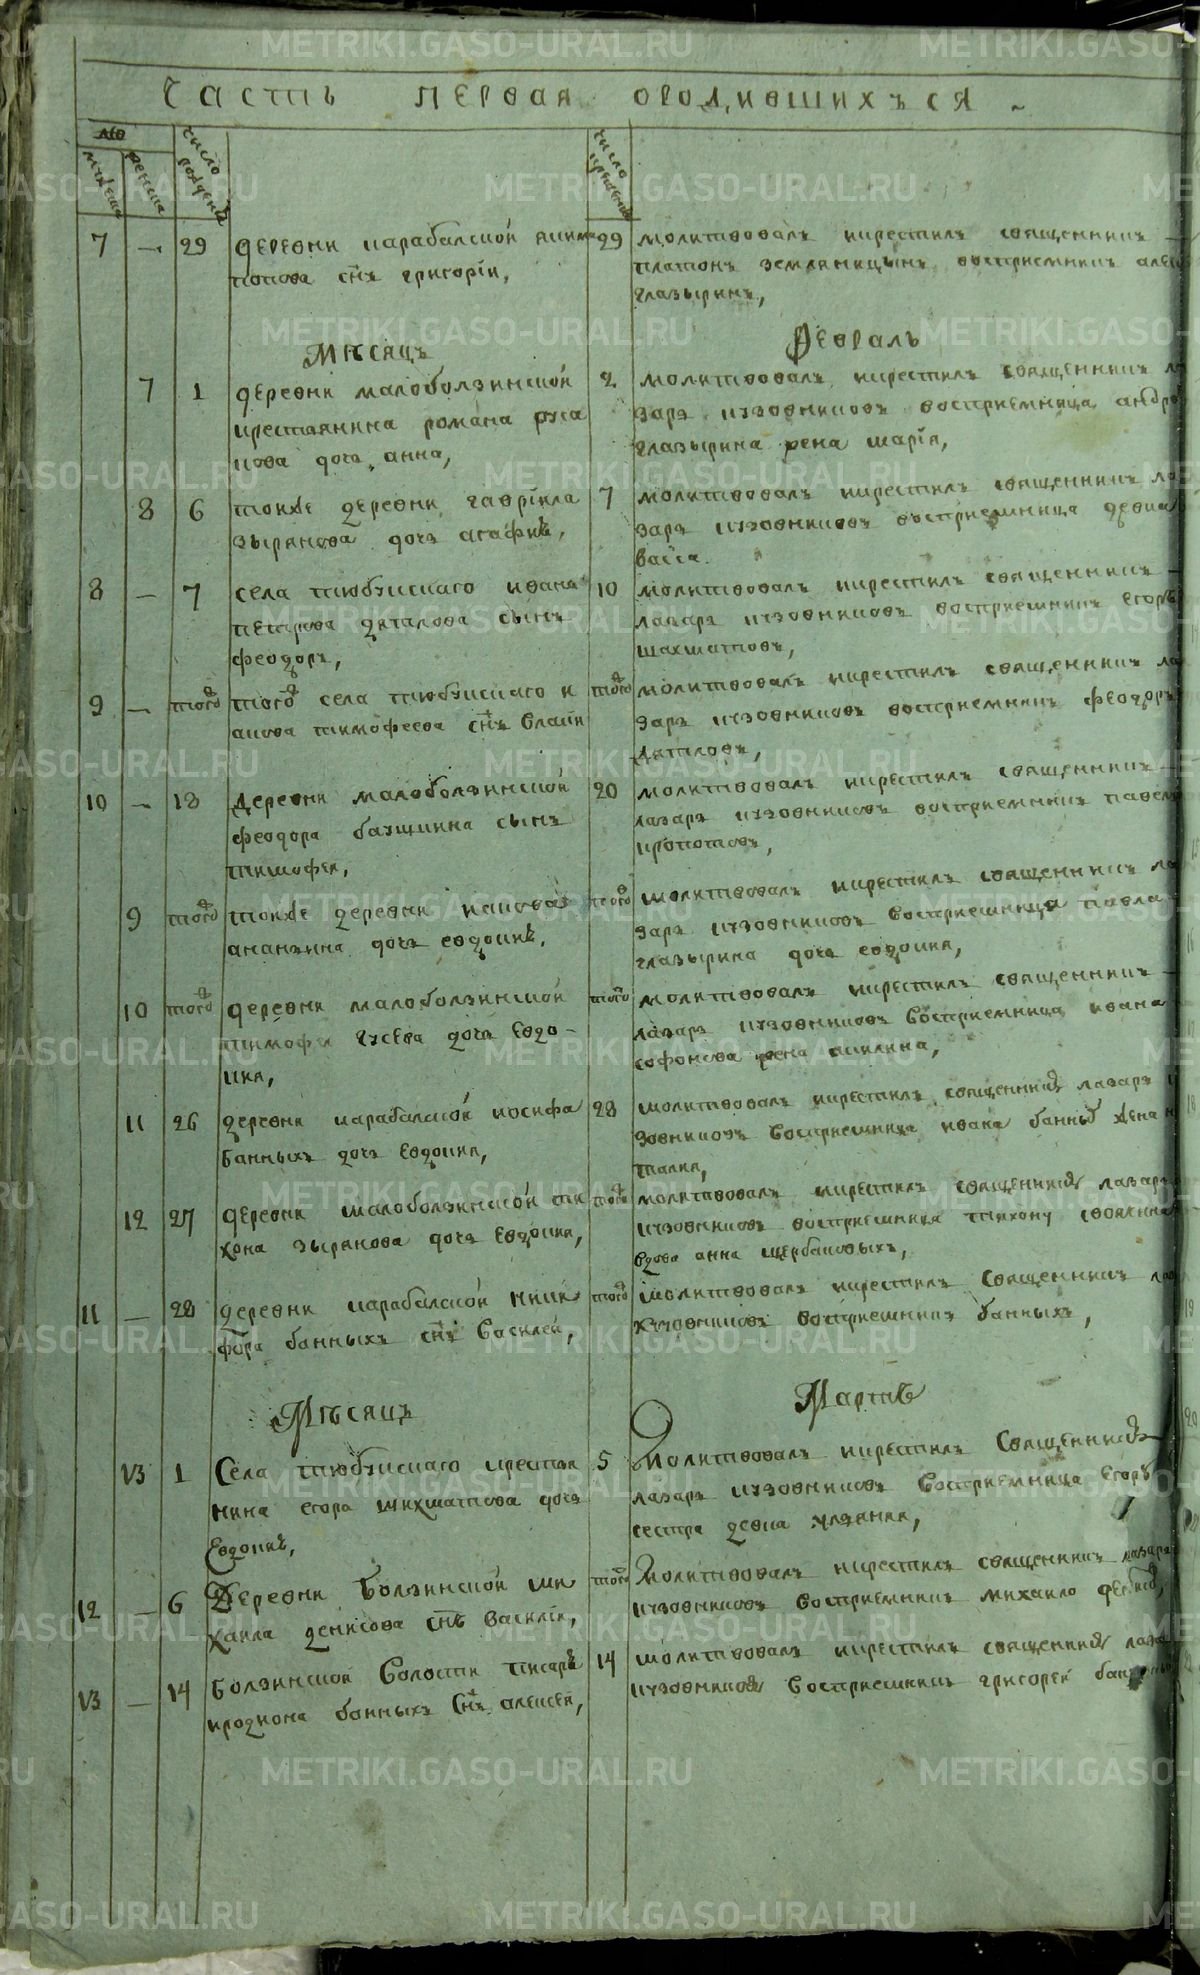 Часть первая ородившихъся
№
мужеска
женска
число рождения
число крещения
7 — 29 деревни карабалской якима
попова снъ григорiи,
29 молитвовалъ икрестилъ священникъ
платонъ земляницынъ восприемникъ алек
глазыринъ,
Мѣсяцъ
Февраль
7 1 деревни малоболзинской
крестьянина романа руса
кова дочь анна,
2 молитвовалъ икрестилъ священникъ ла
заръ кузовниковъ восприемница андре
глазырина жена марiя,
8 6 тоиже деревни гаврiила
зырянова дочь агафиѣ,
7 молитвовалъ икрестилъ священникъ ла
заръ кузовниковъ восприемница девка
васса.
8 — 7 села тюбукскаго ивана
петрова дятлова сынъ
феодоръ,
10 молитвовалъ икрестилъ священникъ
лазаръ кузовниковъ восприемникъ егоръ
шахматовъ,
9 — тогож тогож села тюбукскаго и
акова тимофеева снъ власiи
тогож молитвовалъ икрестилъ священникъ ла
заръ кузовниковъ восприемникъ феодоръ
дятловъ,
10 — 18 деревни малоболзинской
феодора бакшина сынъ
тимофеи,
20 молитвовалъ икрестилъ священникъ
лазаръ кузовниковъ восприемникъ павелъ
кропотовъ,
9 тогож тоиже деревни иакова
ананьина дочь евдокиѣ,
тогож молитвовалъ икрестилъ священникъ ла
заръ кузовниковъ восприемница павла
глазырина дочь евдокия,
10 тогож деревни малоболзинской
тимофея гусева дочь евдо-
кия,
тогож молитвовалъ икрестилъ священникъ
лазаръ кузовниковъ восприемница ивана
софонова жена акилина,
11 26 деревни карабалской иосифа
банныхъ дочь евдокия,
28 молитвовалъ икрестилъ священник лазаръ к
зовниковъ восприемница ивана банных жена н
талия,
12 27 деревни малоболзинской ти
хона зырянова дочь евдокия,
тогож молитвовалъ икрестилъ священник лазаръ
кузовниковъ восприемница тихону своячина
вдова анна щербаковыхъ,
11 — 28 деревни карабалской ники
фора банныхъ снъ василей,
тогож молитвовалъ икрестилъ священникъ лаз
кузовниковъ восприемникъ банныхъ,
Мѣсяцъ
Мартъ
13 1 Села тюбукскаго крестья
нина егора шихматова дочь
Евдокиѣ,
5 Молитвовалъ икрестилъ Священник
лазаръ кузовниковъ восприемница егоръ
сестра девка ульяния,
12 — 6 Деревни Болзинской ми
хаила денисова снъ василiи,
тогож Молитвовалъ икрестилъ священникъ лазаръ
кузовниковъ восприемникъ михаило
13 — 14 Болзинской волости писарь
иродиона банныхъ снъ алексей,
14 молитвовалъ икрестилъ священник лаза
кузовников восприемникъ григорей
METRIKI.GASO-URAL.RU